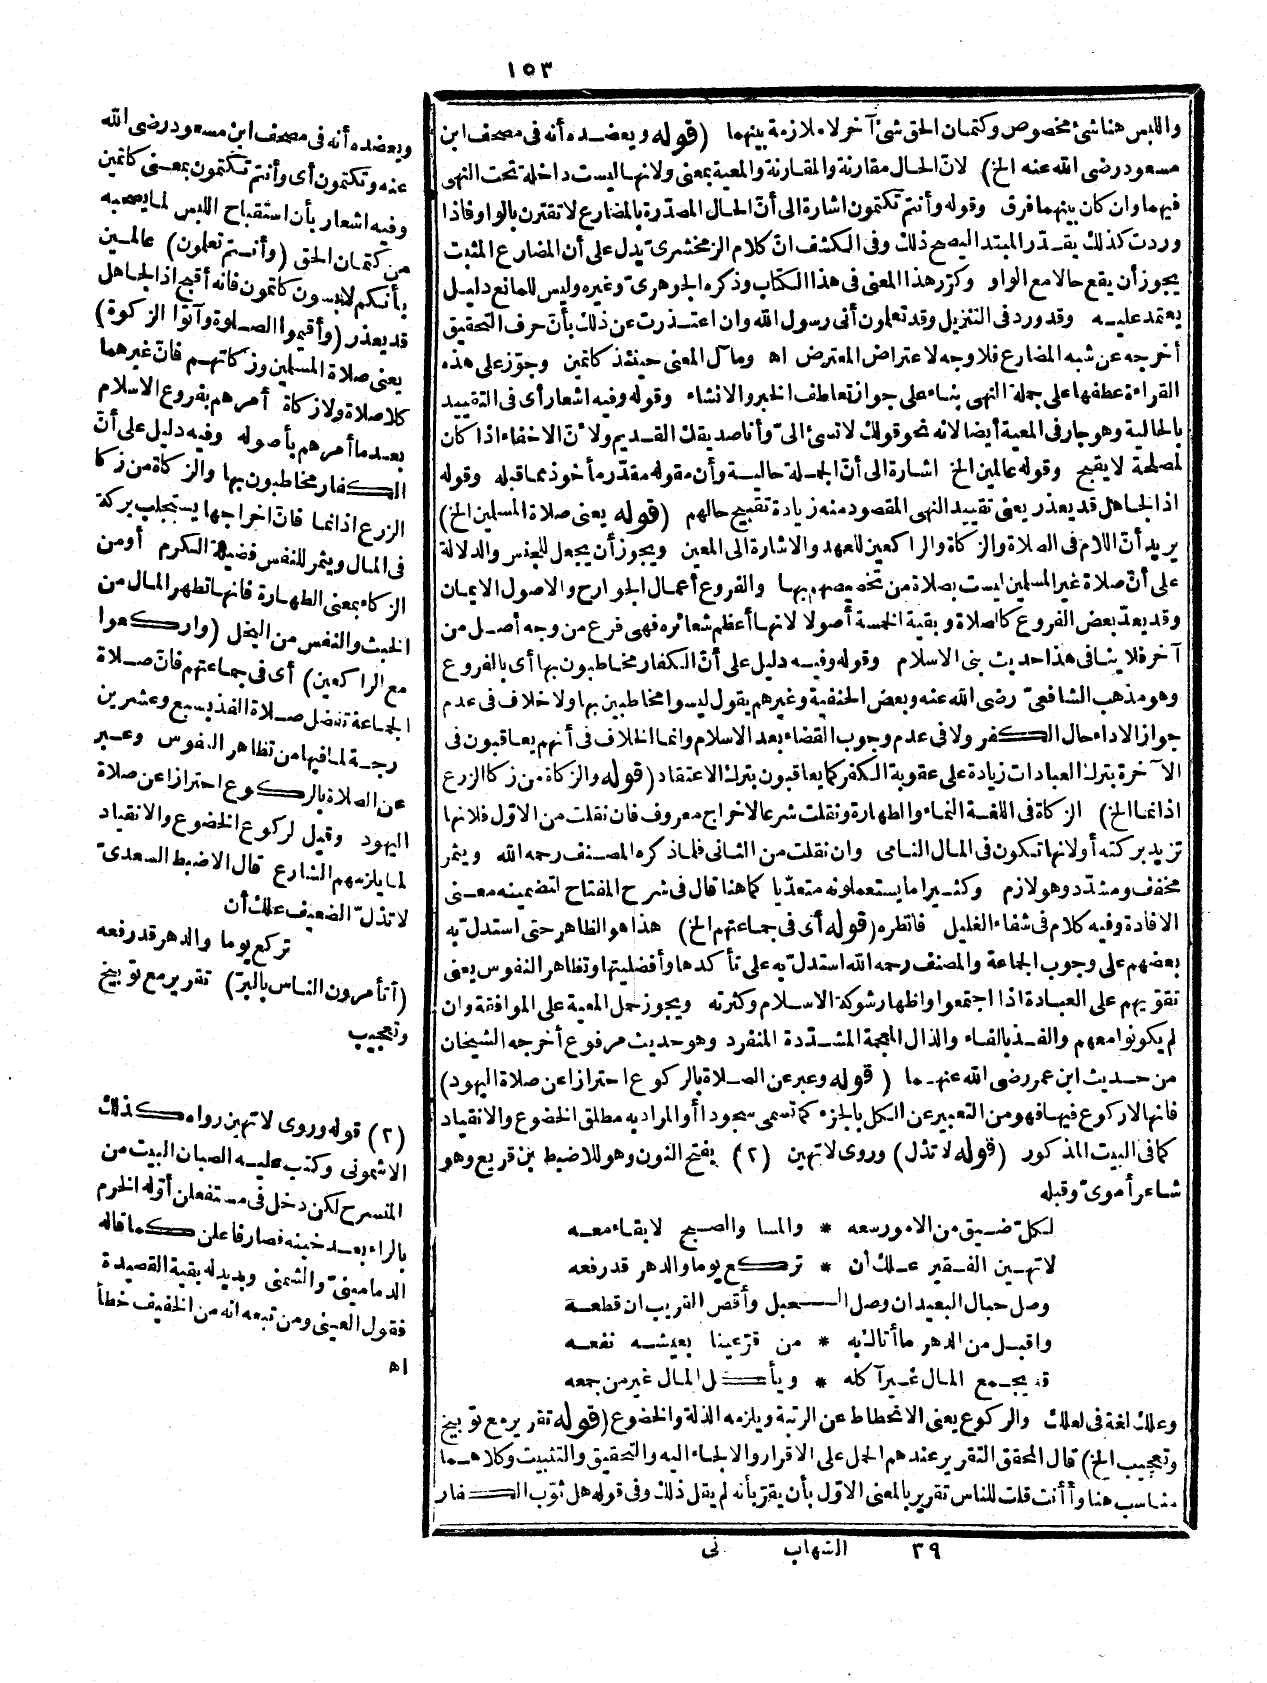 ١٥٣
واللبس هنا شئ مخصوص وكتمان الحق شئ آخر لا ملازمة بينهما (قوله ويعضده أنه في مصحف ابن
مسعود رضى الله عنه الخ) لانّ الحال مقارنة والمقارنة والمعية بمعنى ولانها ليست داخلة تحت النهى
فيهما وان كان بينهما فرق وقوله وأنتم تكتمون اشارة الى أنّ الحال المصدّرة بالمضارع لا تقترن بالواو فاذا
وردت كذلك يقدّر المبتدا ليصح ذلك وفى الكشف انّ كلام الزمخشرىّ يدل على أن المضارع المثبت
يجوز أن يقع حالا مع الواو وكرّر هذا المعنى فى هذا الكتاب وذكره الجوهرىّ وغيره وليس للمانع دليل
يعتمد عليه وقد ورد فى التنزيل وقد تعلمون أنى رسول الله وان اعتذرت عن ذلك بأنّ حرف التحقيق
أخرجه عن شبه المضارع فلا وجه لاعتراض المعترض اه ومآل المعنى حينئذ كاتمين وجوّز على هذه
القراءة عطفها على جملة النهى بناء على جواز تعاطف الخبر والانشاء وقوله وفيه اشعار أى فى التقييد
بالحالية وهو جار فى المعية أيضا لانه نحو قولك لا تسئ الىّ وأنا صديقك القديم ولانّ الاخفاء اذا كان
لمصلحة لا يقبح وقوله عالمين الخ اشارة الى أنّ الجملة حالية وأن مقوله مقدّر مأخوذ مما قبله وقوله
اذ الجاهل قد يعذر يعنى تقييد النهى المقصود منه زيادة تقبيح حالهم (قوله يعنى صلاة المسلمين الخ)
يريد أنّ اللام فى الصلاة والزكاة والراكعين للعهد والاشارة الى المعين ويجوز أن يجعل للجنس والدلالة
على أنّ صلاة غير المسلمين ليست بصلاة من تخصيصهم بها والفروع أعمال الجوارح والاصول الايمان
وقد يعدّ بعض الفروع كالصلاة وبقية الخمسة أصولا لانها أعظم شعائره فهى فرع من وجه أصل من
آخر فلا ينافى هذا حديث بنى الاسلام وقوله وفيه دليل على أنّ الكفار مخاطبون بها أى بالفروع
وهو مذهب الشافعىّ رضى الله عنه وبعض الحنفية وغيرهم يقول ليسوا مخاطبين بها ولا خلاف فى عدم
جواز الاداء حال الكفر ولا فى عدم وجوب القضاء بعد الاسلام وانما الخلاف فى أنهم يعاقبون فى
الآخرة بترك العبادات زيادة على عقوبة الكفر كما يعاقبون بترك الاعتقاد (قوله والزكاة من زكا الزرع
اذا نما الخ) الزكاة فى اللغة النماء والطهارة ونقلت شرعا لاخراج معروف فان نقلت من الاوّل فلانها
تزيد بركته أو لانها تكون فى المال النامى وان نقلت من الثانى فلما ذكره المصنف رحمه الله ويثمر
مخفف ومشدّد وهو لازم وكثيرا ما يستعملونه متعدّيا كما هنا قال فى شرح المفتاح لتضمينه معنى
الافادة وفيه كلام فى شفاء الغليل فانظره (قوله أى فى جماعتهم الخ) هذا هو الظاهر حتى استدلّ به
بعضهم على وجوب الجماعة والمصنف رحمه الله استدلّ به على تأكدها وأفضليتها وتظاهر النفوس يعنى
تقوّيهم على العبادة اذا اجتمعوا واظهار شوكة الاسلام وكثرته ويجوز حمل المعية على الموافقة وان
لم يكونوا معهم والفذ بالفاء والذال المعجمة المشدّدة المنفرد وهو حديث مرفوع أخرجه الشيخان
من حديث ابن عمر رضى الله عنهما (قوله وعبر عن الصلاة بالركوع احترازا عن صلاة اليهود)
فانها لا ركوع فيها فهو من التعبير عن الكل بالجزء كما تسمى سجودا أو المراد به مطلق الخضوع والانقياد
كما فى البيت المذكور (قوله لا تذل) وروى لا تهين (٢) بفتح النون وهو للاضبط بن قريع وهو
شاعر أموىّ وقبله
لكلّ ضيق من الامور سعه * والمسا والصبح لا بقاء معه
لا تهين الفقير علك أن * تركع يوما والدهر قد رفعه
وصل حبال البعيد ان وصل الحبل وأقص القريب ان قطعه
واقبل من الدهر ما أتاك به * من قرّ عينا بعيشه نفعه
قد يجمع المال غير آكله * ويأكل المال غير من جمعه
وعلك لغة فى لعلك والركوع يعنى الانحطاط عن الرتبة ويلزمه الذلة والخضوع (قوله تقرير مع توبيخ
وتعجيب الخ) قال المحقق التقرير عندهم الحمل على الاقرار والالجاء اليه والتحقيق والتثبيت وكلاهما
مناسب هنا وأأنت قلت للناس تقرير بالمعنى الاوّل بأن يقرّ بأنه لم يقل ذلك وفى قوله هل ثوّب الكفار
٣٩ الشهاب نى
ويعضده أنه فى مصحف ابن مسعود رضى الله
عنه وتكتمون أى وأنتم تكتمون بمعنى كاتمين
وفيه اشعار بأن استقباح اللبس لما يصحبه
من كتمان الحق (وأنتم تعلمون) عالمين
بأنكم لابسون كاتمون فانه أقبح اذ الجاهل
قد يعذر (وأقيموا الصلوة وآتوا الزكوة)
يعنى صلاة المسلمين وزكاتهم فانّ غيرهما
كلا صلاة ولا زكاة أمرهم بفروع الاسلام
بعد ما أمرهم بأصوله وفيه دليل على أنّ
الكفار مخاطبون بها والزكاة من زكا
الزرع اذا نما فانّ اخراجها يستجلب بركة
فى المال ويثمر للنفس فضيلة الكرم أو من
الزكاء بمعنى الطهارة فانها تطهر المال من
الخبث والنفس من البخل (واركعوا
مع الراكعين) أى فى جماعتهم فانّ صلاة
الجماعة تفضل صلاة الفذ بسبع وعشرين
رجة لما فيها من تظاهر النفوس وعبر
عن الصلاة بالركوع احترازا عن صلاة
اليهود وقيل لركوع الخضوع والانقياد
لما يلزمهم الشارع قال الاضبط السعدىّ
لا تذلّ الضعيف علك أن
تركع يوما والدهر قد رفعه
(أتأمرون الناس بالبرّ) تقرير مع توبيخ
وتعجيب
(٢) قوله وروى لا تهين رواه كذلك
الاشمونى وكتب عليه الصبان البيت من
المنسرح لكن دخل فى مستفعلن أوّله الخرم
بالراء بعد خبنه فصار فاعلن كما قاله
الدمامينىّ والشمنى ويدل له بقية القصيدة
فقول العينى ومن تبعه انه من الخفيف خطأ
اه